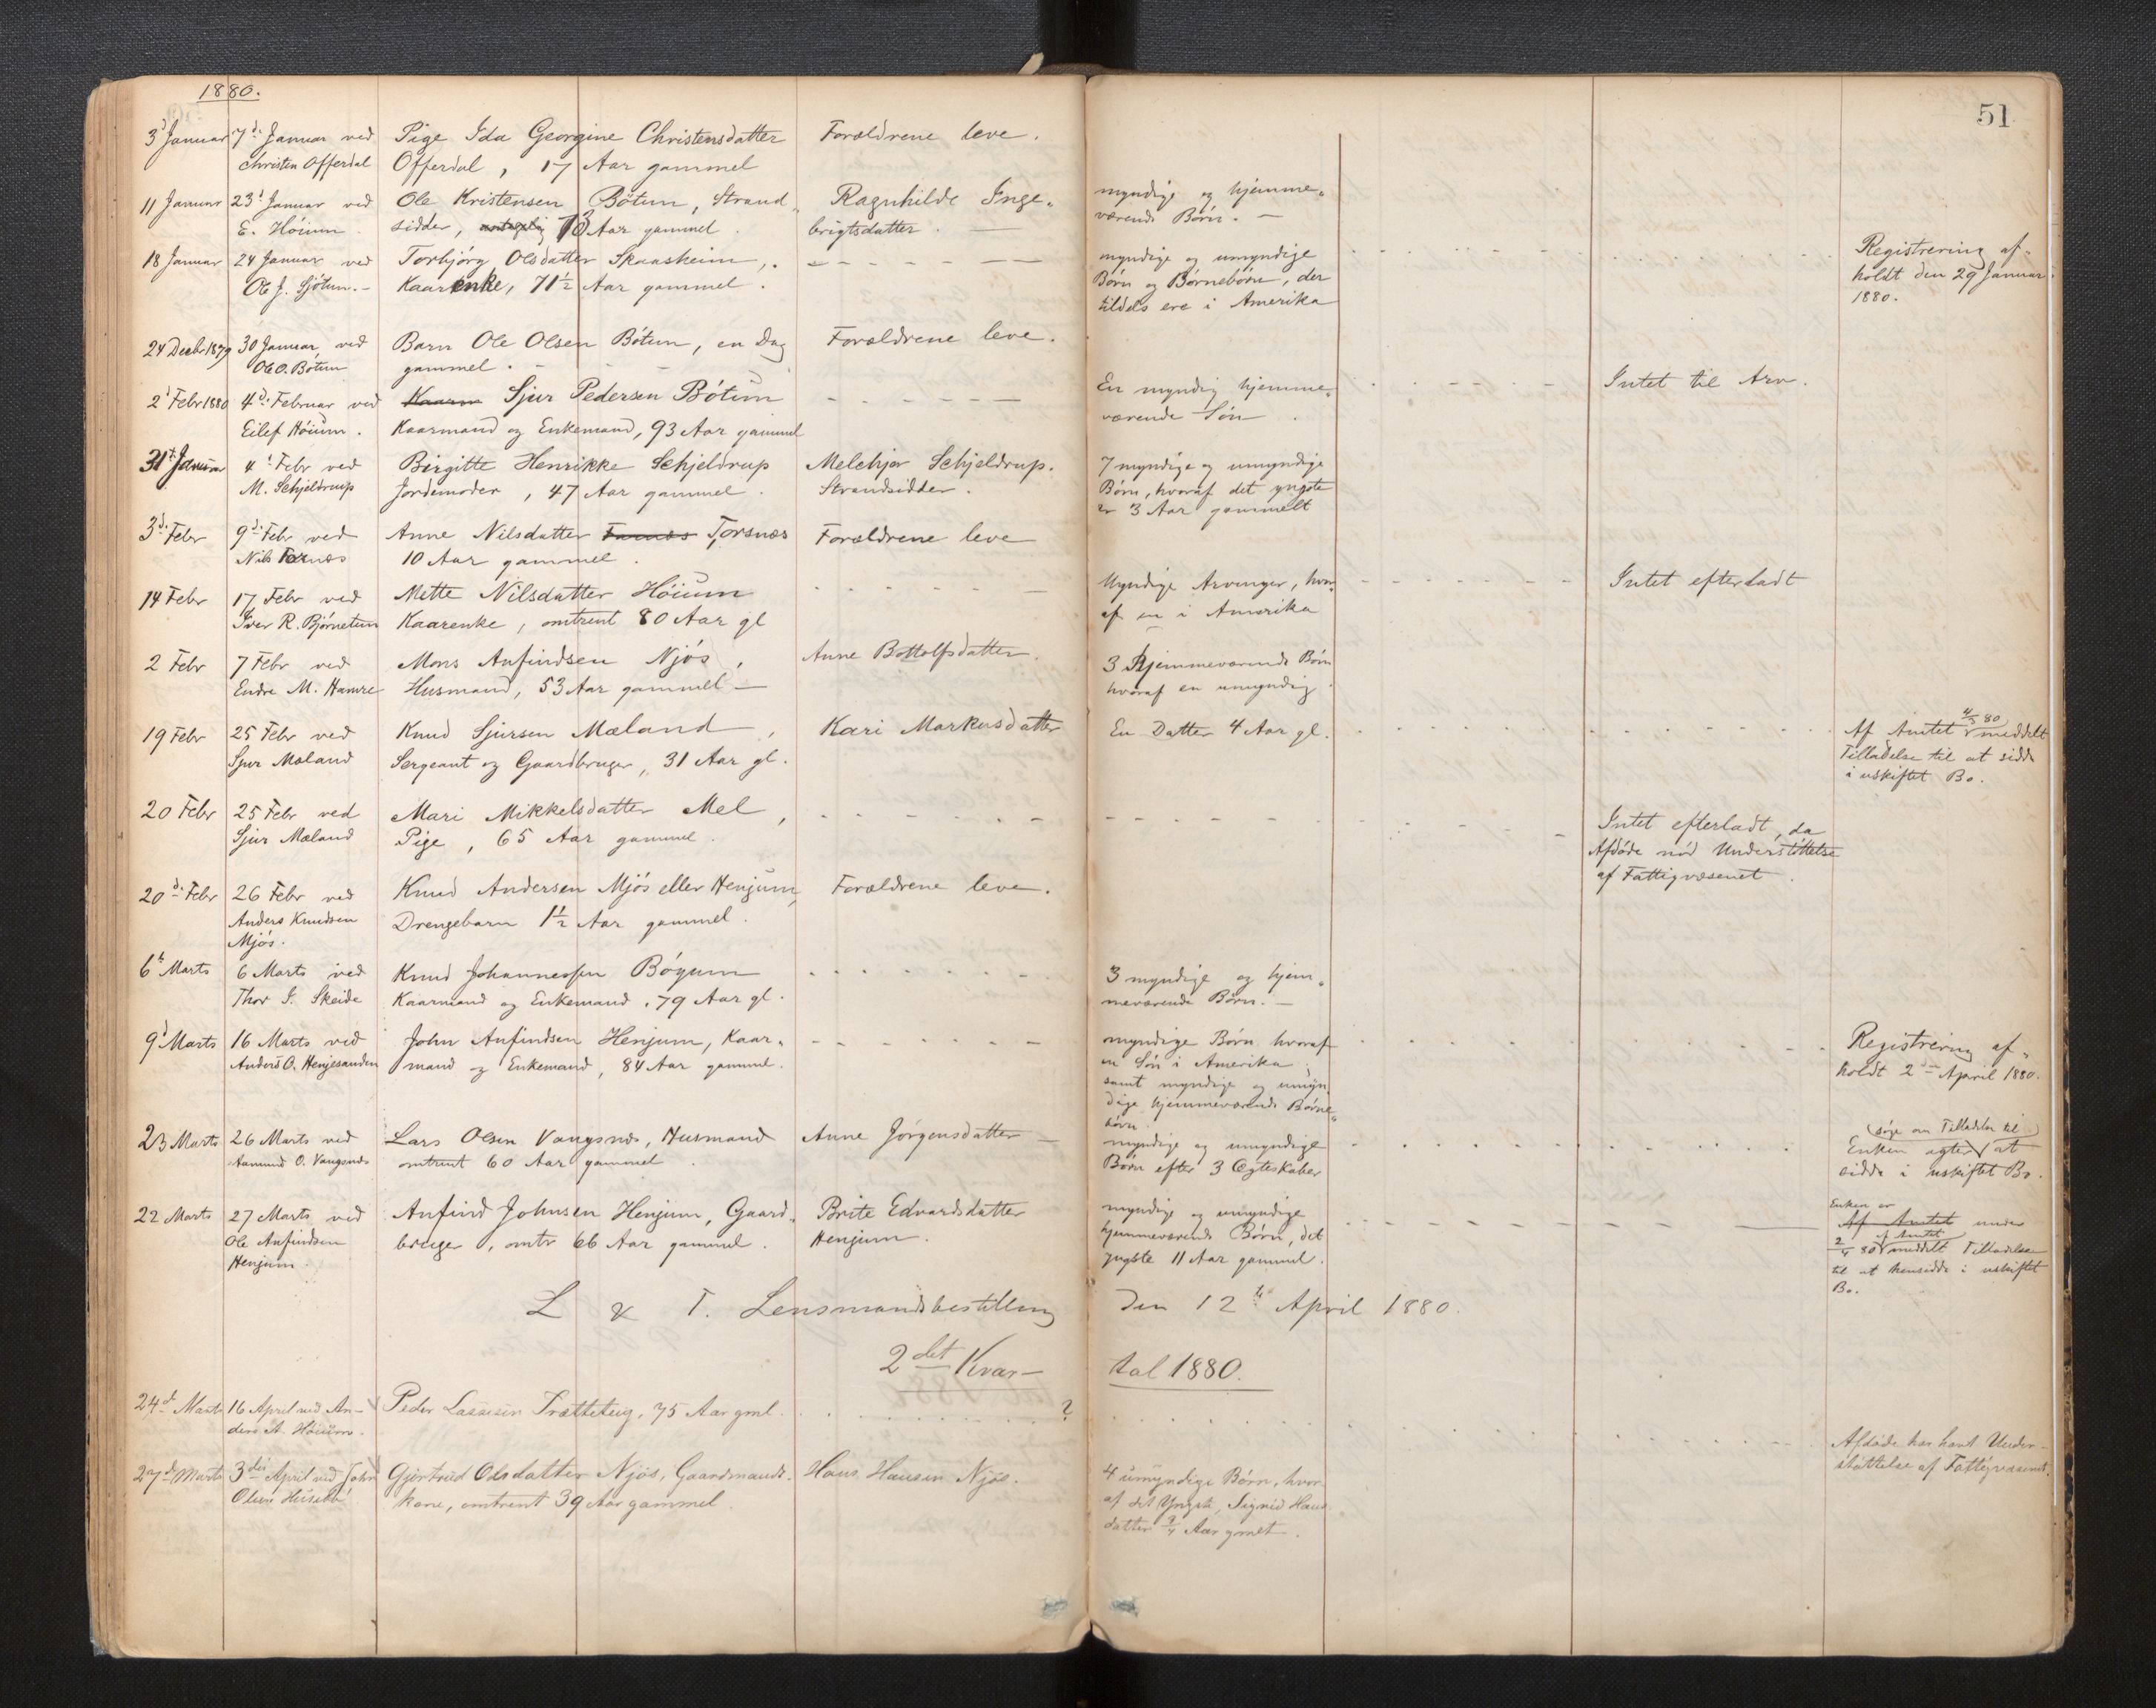 1880.
51
3d Januar
7de Januar ved
Christen Offerdal
Pige Ida Georgine Christensdatter
Offerdal, 17 Aar gammel
Forældrene leve.
11 Januar
23d Januar ved
E. Höium.
Ole Kristensen Bötun, Strand„
sidder, 73 Aar gammel.
Ragnhilde Inge„
brigtsdatter. —
myndige og hjemme„
værende Börn. —
18 Januar
24 Januar ved
Ole J. Sjötun. —
Torbjörg Olsdatter Skaasheim,
Kaarenke, 71½ Aar gammel.
myndige og umyndige
Börn og Börnebörn, der
tildels ere i Amerika
Registrering af„
holdt den 29 Januar
1880.
24 Decbr 1879
30 Januar ved
Ole O. Bötun
Barn Ole Olsen Bötun, en Dag
gammel.
Forældrene leve.
2d Febr 1880
4de Februar ved
Eilef Höium.
Kaarm Sjur Pedersen Bötun
Kaarmand og Enkemand, 93 Aar gammel
En myndig hjemme„
værende Sön
Intet til Arv.
31t Januar
4d Febr ved
M. Schjeldrup
Birgitte Henrikke Schjeldrup
Jordemoder, 47 Aar gammel.
Melchjor Schjeldrup.
Strandsidder.
7 myndige og umyndige
Börn, hvoraf det yngste
er 3 Aar gammelt
3de Febr
9de Febr ved
Nils Tornæs
Anne Nilsdatter Farnæs Torsnæs
10 Aar gammel.
Forældrene leve
14 Febr
17 Febr ved
Iver R. Bjørnetun
Mette Nilsdatter Höium
Kaarenke, omtrent 80 Aar gl
Myndige Arvinger, hvor„
af en i Amerika
Intet efterladt
2 Febr
7 Febr ved
Endre M. Hamre
Mons Anfindsen Njös,
Husmand, 53 Aar gammel —
Anne Bottolfsdatter.
3 Hjemmeværende Börn
hvoraf en umyndig.
19 Febr
25 Febr ved
Sjur Mæland
Knud Sjursen Mæland,
Sergeant og Gaardbruger, 31 Aar gl.
Kari Markusdatter
En Datter 4 Aar gl.
4/3 80
Af Amtet meddelt
Tilladelse til at sidde
i uskiftet Bo.
20 Febr
25 Febr ved
Sjur Mæland
Mari Mikkelsdatter Mel,
Pige, 65 Aar gammel.
Intet efterladt, da
Afdöde nöd Understöttelse
af Fattigvæsenet.
20de Febr
26 Febr ved
Anders Knudsen
Mjös.
Knud Andersen Mjös eller Henjum,
Drengebarn 1½ Aar gammel.
Forældrene leve.
6t Marts
6 Marts ved
Thor S. Skeide
Knud Johannessen Böyum
Kaarmand og Enkemand, 79 Aar gl.
3 myndige og hjem„
meværende Börn. —
9d Marts
16 Marts ved
Anders O. Henjesanden
John Anfindsen Henjum, Kaar„
mand og Enkemand, 84 Aar gammel.
myndige Börn hvoraf
en Sön i Amerika,
samt myndige og umyn
dige hjemmeværende Börne„
börn.
Registrering af„
holdt 2den April 1880.
23 Marts
26 Marts ved
Aamund O. Vangsnæs
Lars Olsen Vangsnæs, Husmand
omtrent 60 Aar gammel.
Anne Jörgensdatter —
myndige og umyndige
Börn efter 3 Ægteskaber
(söge om Tilladelse til)
Enken agter at
sidde i uskiftet Bo.
22 Marts
27 Marts ved
Ole Anfindsen
Henjum.
Anfind Johnsen Henjum, Gaard„
bruger, omtr 66 Aar gammel.
Brite Edvardsdatter
Henjum.
myndige og umyndige
hjemmeværende Börn, det
yngste 11 Aar gammel.
Enken er
Af Amtet under
af Amtet
2/4 80 meddelt Tilladelse
til at hensidde i uskiftet
Bo.
L & T. Lensmandsbestilling den 12te April 1880.
2det Kvar— tal 1880.
24d Marts
16 April ved An—
ders A. Höium.
Peder Lassesen Trætteteig, 75 Aar gml.
?
Afdöde har havt Under—
stöttelse af Fattigvæsenet.
27de Marts
3die April ved John
Olsen Husebö
Gjertrud Olsdatter Njös, Gaardmands„
kone, omtrent 39 Aar gammel.
Hans Hansen Njös.
4 umyndige Börn, hvor
af det Yngste, Signid Hans
datter 3/4 Aar gmlt.